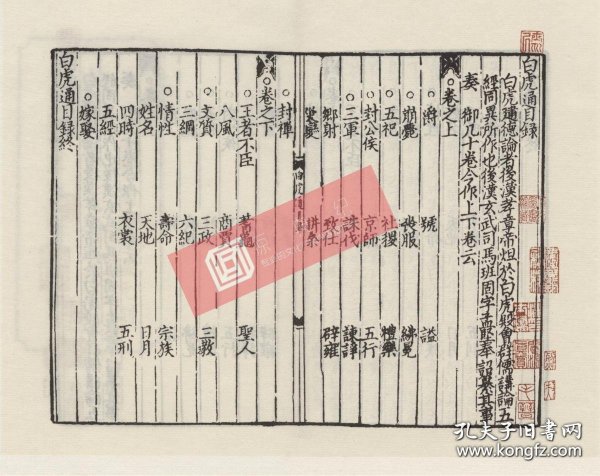 白虎通目録
白虎通德論者後漢孝章帝烜於白虎殿會群儒講論五
經同異所作也後漢玄武司馬班固字孟堅奉詔纂其事
奏 御凡十卷今作上下卷云
○卷之上
○爵 號 謚
○崩薨 喪服 紼冕
○五祀 社稷 禮樂
○封公侯 京師 五行
○三軍 誅伐 諫諍
○鄉射 致仕 辟雍
災變 耕桑
○封禪
○卷之下
○王者不臣 蓍龜 聖人
八風 商賈
○文質 三政 三教
三綱 六紀
○情性 壽命 宗族
姓名 天地 日月
四時 衣裳 五刑
五經
○嫁娶
白虎通目録終
孔夫子旧书网
www.kongfz.com